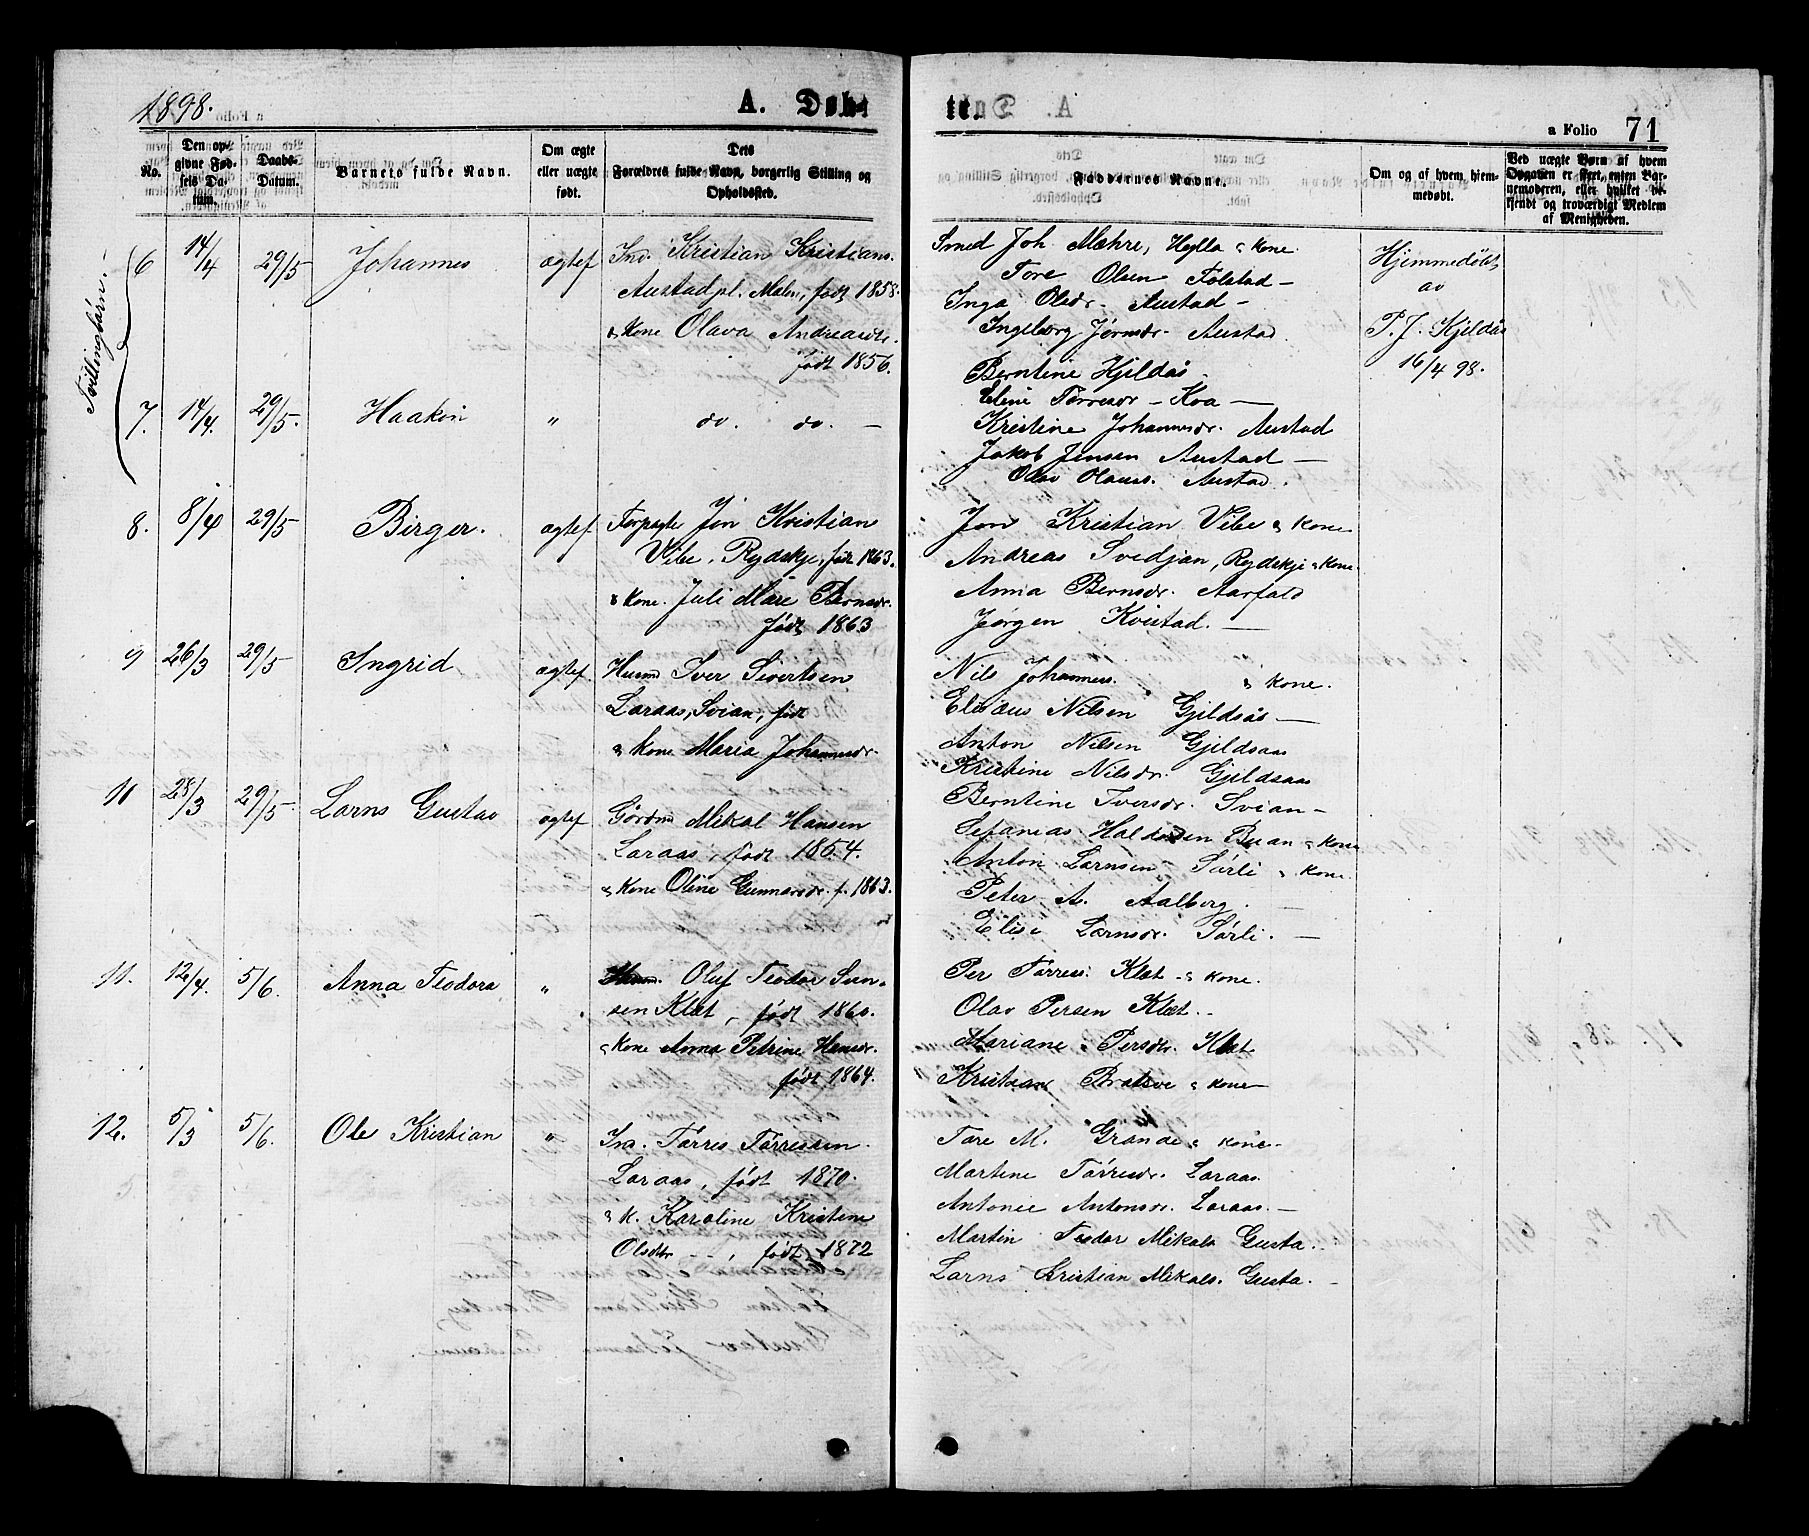 1898.
A. Døbt
No.
Den opgivne Fødsels Datum.
Daabs-Datum.
Barnets fulde Navn.
Om ægte eller uægte født.
Dets Forældres fulde Navn, borgerlig Stilling og Opholdssted.
a Folio 71
Faddernes Navne.
Om og af hvem hjemmedøbt.
Ved uægte Børn af hvem Opgaven er skeet, enten Barnemoderen, eller hvilket bekjendt og troværdigt Medlem af Menigheden.
Tvillingbørn.
6 14/4 29/5 Johannes ægtef. Ind. Kristian Kristians.
Austad pl. Malm, født 1858.
& kone Olava Andreasdr.
født 1856.
Smed Joh. Mæhre, Hylla & kone.
Tore Olsen Følstad —
Inga Olsdr. Austad —
Ingeborg Jørnsdr. Austad.
Berntine Kjeldås
Hjemmedøbt
av
P. J. Kjeldås
16/4 98.
7. 14/4. 29/5. Haakon " do. do. —
Eline Tørresdr — Kva —
Kristine Johannesdr. Austad
Jakob Jensen Austad —
Olav Olaus. Austad.
8. 8/4 29/5 Birger. ægtef. Forpagte Jon Kristian
Vibe, Rydskje, født 1863.
& kone. Juli Mare Bernsdr.
født 1863
Jon Kristian Vibe & kone
Andreas Svedjan, Rydskje & kone.
Anna Bernsdr. Aarfald
Jørgen Kvistad. —
9 26/3 29/5 Ingrid ægtef. Husmd Iver Sivertsen
Laraas, Svian, født
& kone Maria Johannesdr.
Nils Johanness. & kone.
Elisæus Nilsen Gjeldsås —
Anton Nilsen Gjeldsaas
Kristine Nilsdr. Gjeldsaas
Berntine Iversdr. Svian —
10 28/3 29/5. Lorns Gustav ægtef Gårdmd Mikal Hansen
Laraas, født 1854.
& kone Oline Gunnarsdr. f. 1863.
Sefanias Haldosen Buan & kone
Anton Lornsen Sørli & kone.
Peter A. Aalberg. —
Elise Lornsdr. Sørli. —
11. 12/4. 5/6. Anna Teodora " Oluf Teodor Svensen
Klæt, født 1860.
& kone Anna Petrine Hansdr.
født 1864.
Per Tørres. Klæt & kone.
Olav Persen Klæt.
Mariane Persdtr. Klæt
Kristian Bratsve & kone —
12. 5/3 5/6. Ole Kristian " Ind. Tørres Tørressen
Laraas, født 1870.
& k. Karoline Kristine
Olsdtr — , født 1872
Tore M. Grande & kone.
Martine Tørresdr. Laraas.
Antonie Antonsdr. Laraas. —
Martin Teodor Mikals Gusta.
Lorns Kristian Mikals. Gusta. —